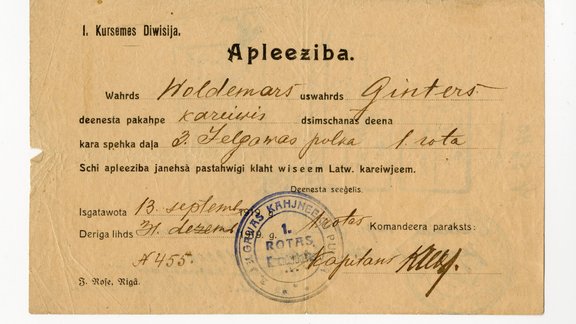 I. Kursemes Diwisija.
Apleeziba.
Wahrds Woldemars uswahrds Ginters
deenesta pakahpe kareiwis dsimschanas deena
kara spehka daļa 3. Jelgawas polka 1. rota
Schi apleeziba janehsà pastahwigi klaht wiseem Latw. kareiwjeem.
Deenesta seeģelis.
Isgatawota 13. septemb 19
Deriga lihds 31. dezemb 19 g. 1. rotas Komandeera paraksts:
JELGAWAS KAHJNEEKU PULKA
1.
ROTAS
№ 455. Kapitans
J. Rose, Rigā.